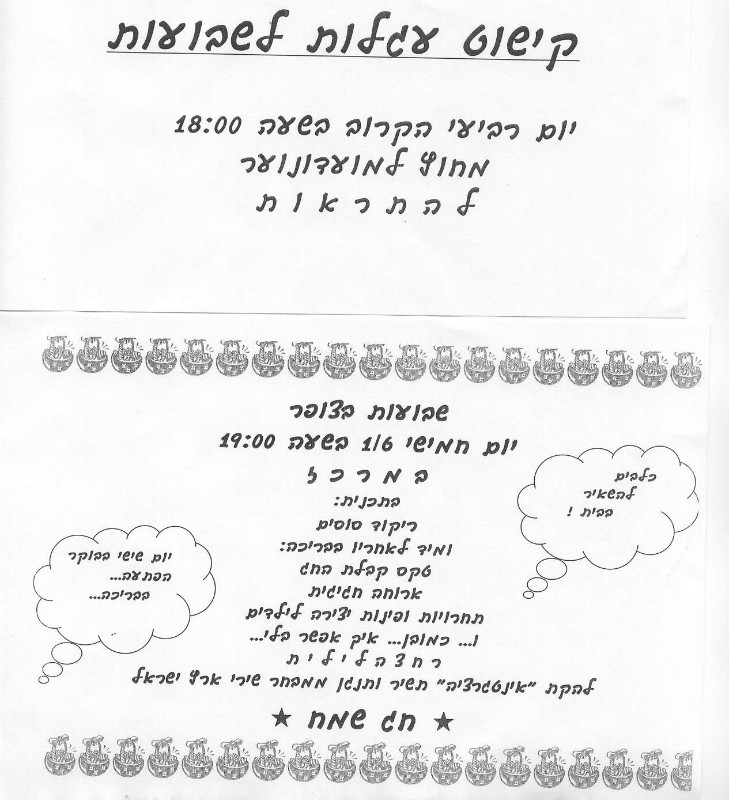 קישוט עגלות לשבועות
יום רביעי הקרוב בשעה 18:00
מחוץ למועדונוער
ל ה ת ר א ו ת
שבועות בצופר
יום חמישי 1/6 בשעה 19:00
ב מ ר כ ז
בתכנית:
ריקוד סוסים
ומיד לאחריו בבריכה:
טקס קבלת החג
ארוחה חגיגית
תחרויות ופינות יצירה לילדים
ו... כמובן... איק אפשר בלי...
ר ח צ ה ל י ל י ת
להקת "אינטגרציה" תשיר ותנגן ממבחר שירי ארץ ישראל
★ חג שמח ★
כלבים
להשאיר
בבית !
יום שישי בבוקר
הפתעה...
בבריכה...